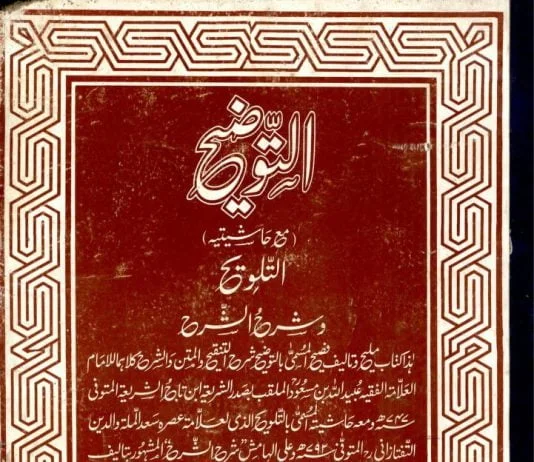 التّوضيح
(مع حاشيتيه)
التلويح
وشرح الشرح
هذا كتاب مليح وتاليف فصيح المسمّى بالتوضيح شرح التنقيح والمتن والشرح كلاهما للامام
العلّامة الفقيه عبيد الله بن مسعود الملقب بصدر الشريعة ابن تاج الشريعة المتوفى
٧٤٧ھ ومعه حاشيته المسمّى بالتلويح الذى لعلّامة عصره سعد الملة والدين
التفتازانى المتوفى ٧٩٢ھ وعلى الهامش "شرح الشرح" المشهور بتاليف